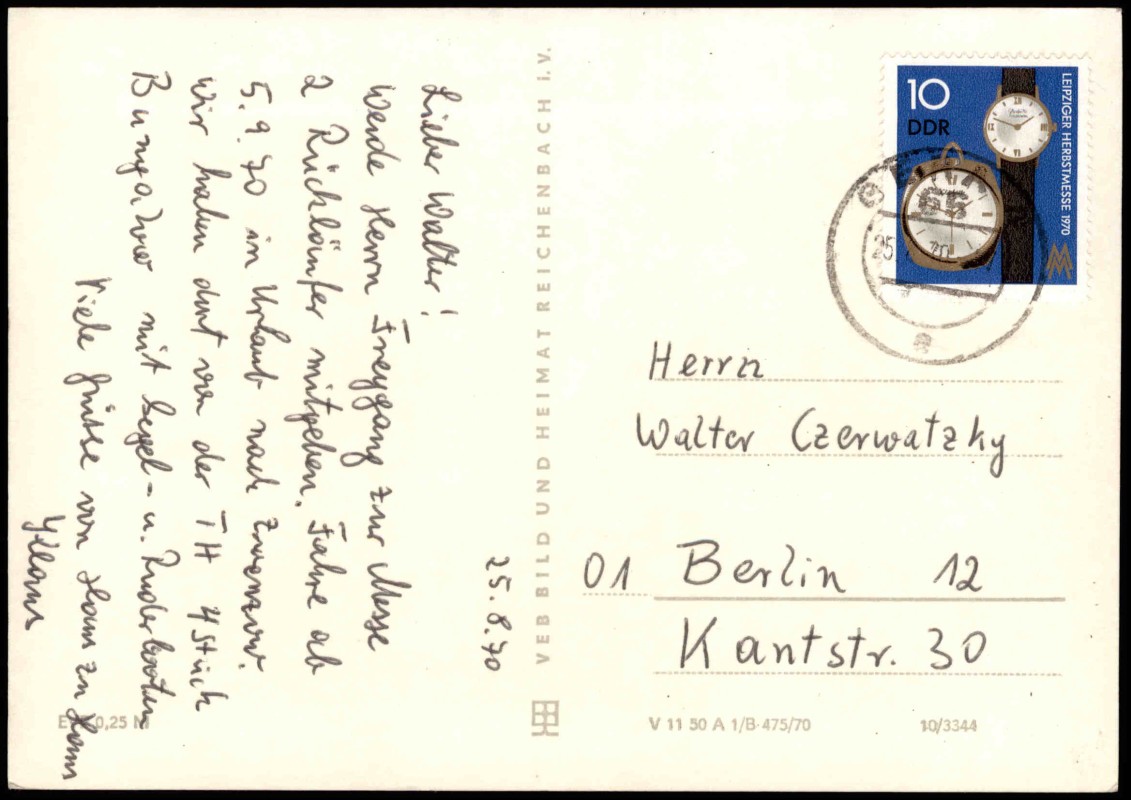 25.8.70
Lieber Walter!
Werde Herrn Freygang zur Messe
2 Rückläufer mitgeben. Fahre ab
5.9.70 in Urlaub nach
Wir haben dort von der TH 4 Stück
Bungalow mit Segel- u. Ruderbooten
Viele Grüsse von Haus zu Haus
VEB BILD UND HEIMAT REICHENBACH I. V.
10
DDR
LEIPZIGER HERBSTMESSE 1970
MM
25
70
Herrn
Walter Czerwatzky
01 Berlin 12
Kantstr. 30
0,25 M
V 11 50 A 1/B·475/70
10/3344